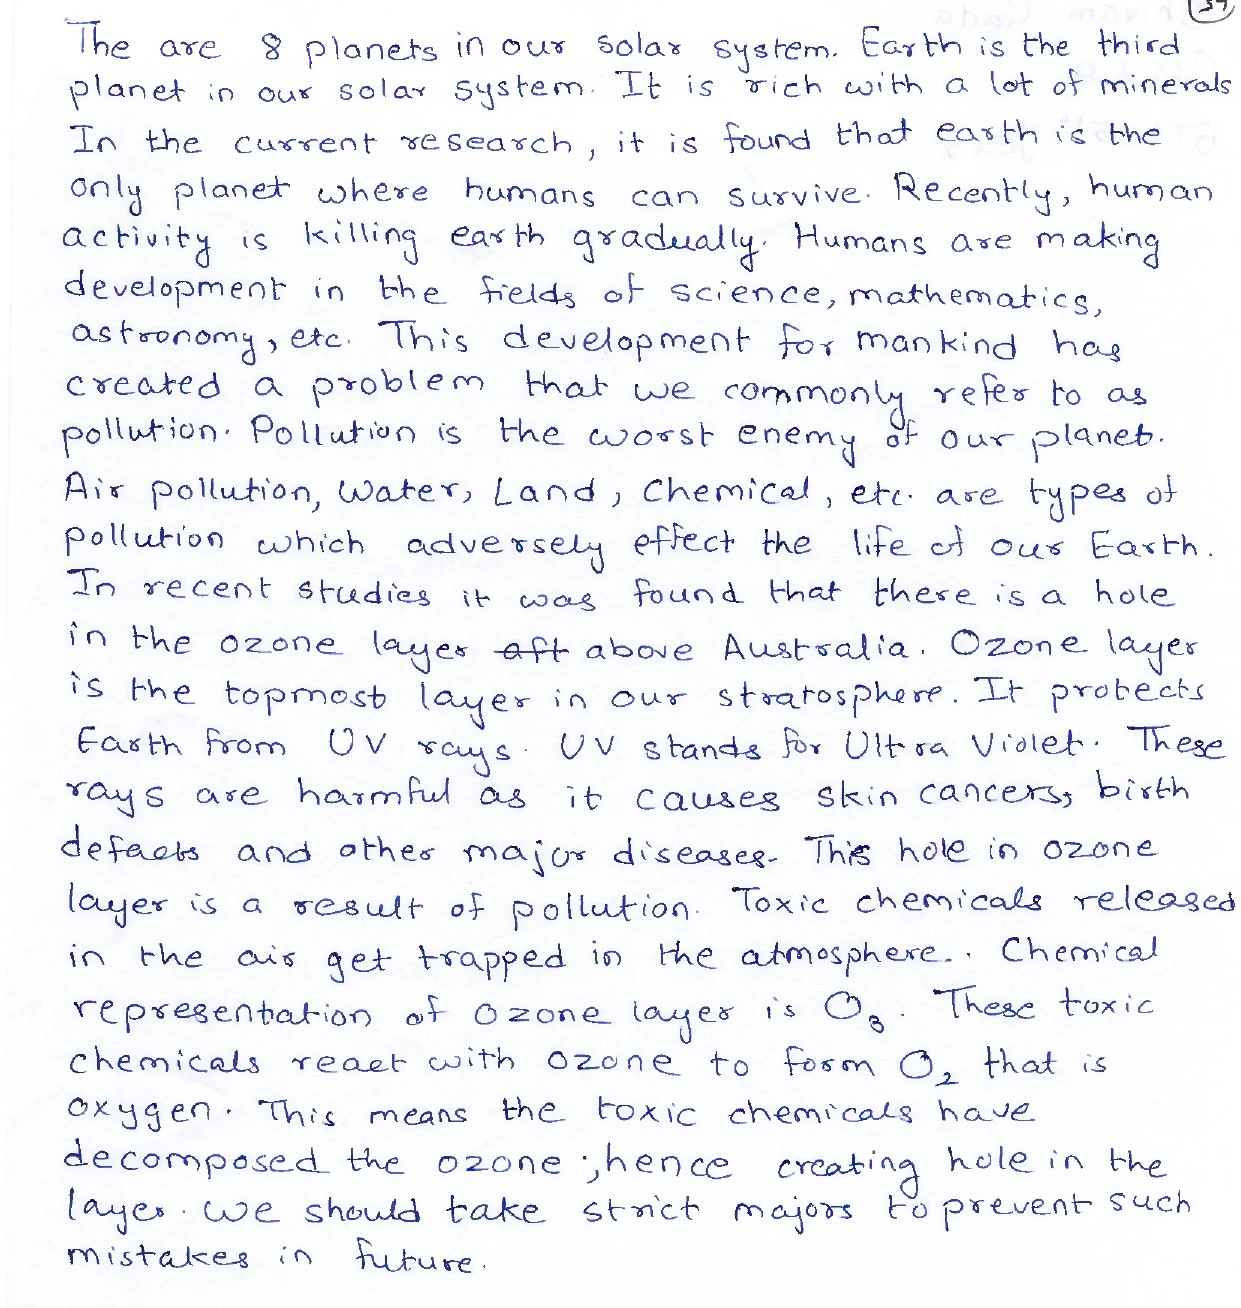 The are 8 planets in our solar system. Earth is the third
planet in our solar system. It is rich with a lot of minerals
In the current research, it is found that earth is the
only planet where humans can survive. Recently, human
activity is killing earth gradually. Humans are making
development in the fields of science, mathematics,
astronomy, etc. This development for mankind has
created a problem that we commonly refer to as
pollution. Pollution is the worst enemy of our planet.
Air pollution, Water, Land, Chemical, etc. are types of
pollution which adversely effect the life of our Earth.
In recent studies it was found that there is a hole
in the ozone layer aft above Australia. Ozone layer
is the topmost layer in our stratosphere. It protects
Earth from UV rays. UV stands for Ultra Violet. These
rays are harmful as it causes skin cancers, birth
defaets and other major diseases. This hole in ozone
layer is a result of pollution. Toxic chemicals released
in the air get trapped in the atmosphere.. Chemical
representation of ozone layer is O₃. These toxic
chemicals react with ozone to form O₂ that is
oxygen. This means the toxic chemicals have
decomposed the ozone ;hence creating hole in the
layer. We should take strict majors to prevent such
mistakes in future.